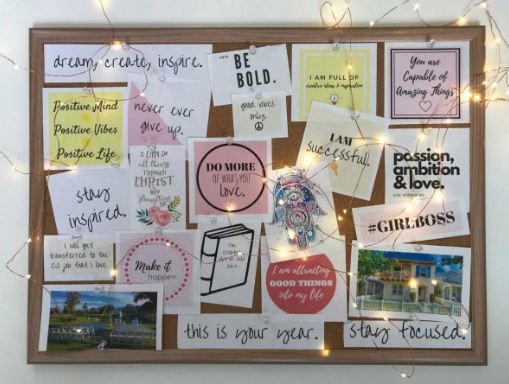 dream, create, inspire.
BE
BOLD.
good vibes
only.
I AM FULL OF
creative ideas & inspiration
You are
Capable of
Amazing Things
Positive Mind
Positive Vibes
Positive Life
never ever
give up.
I CAN DO
all things
THROUGH
CHRIST
WHO
strengthens
me
DO MORE
OF WHAT YOU
love.
I AM
successful.
passion,
ambition
& love.
stay
inspired.
#GIRLBOSS
I will get
transferred to the
job that I love.
Make it
happen.
I am attracting
GOOD THINGS
into my life
this is your year.
stay focused.